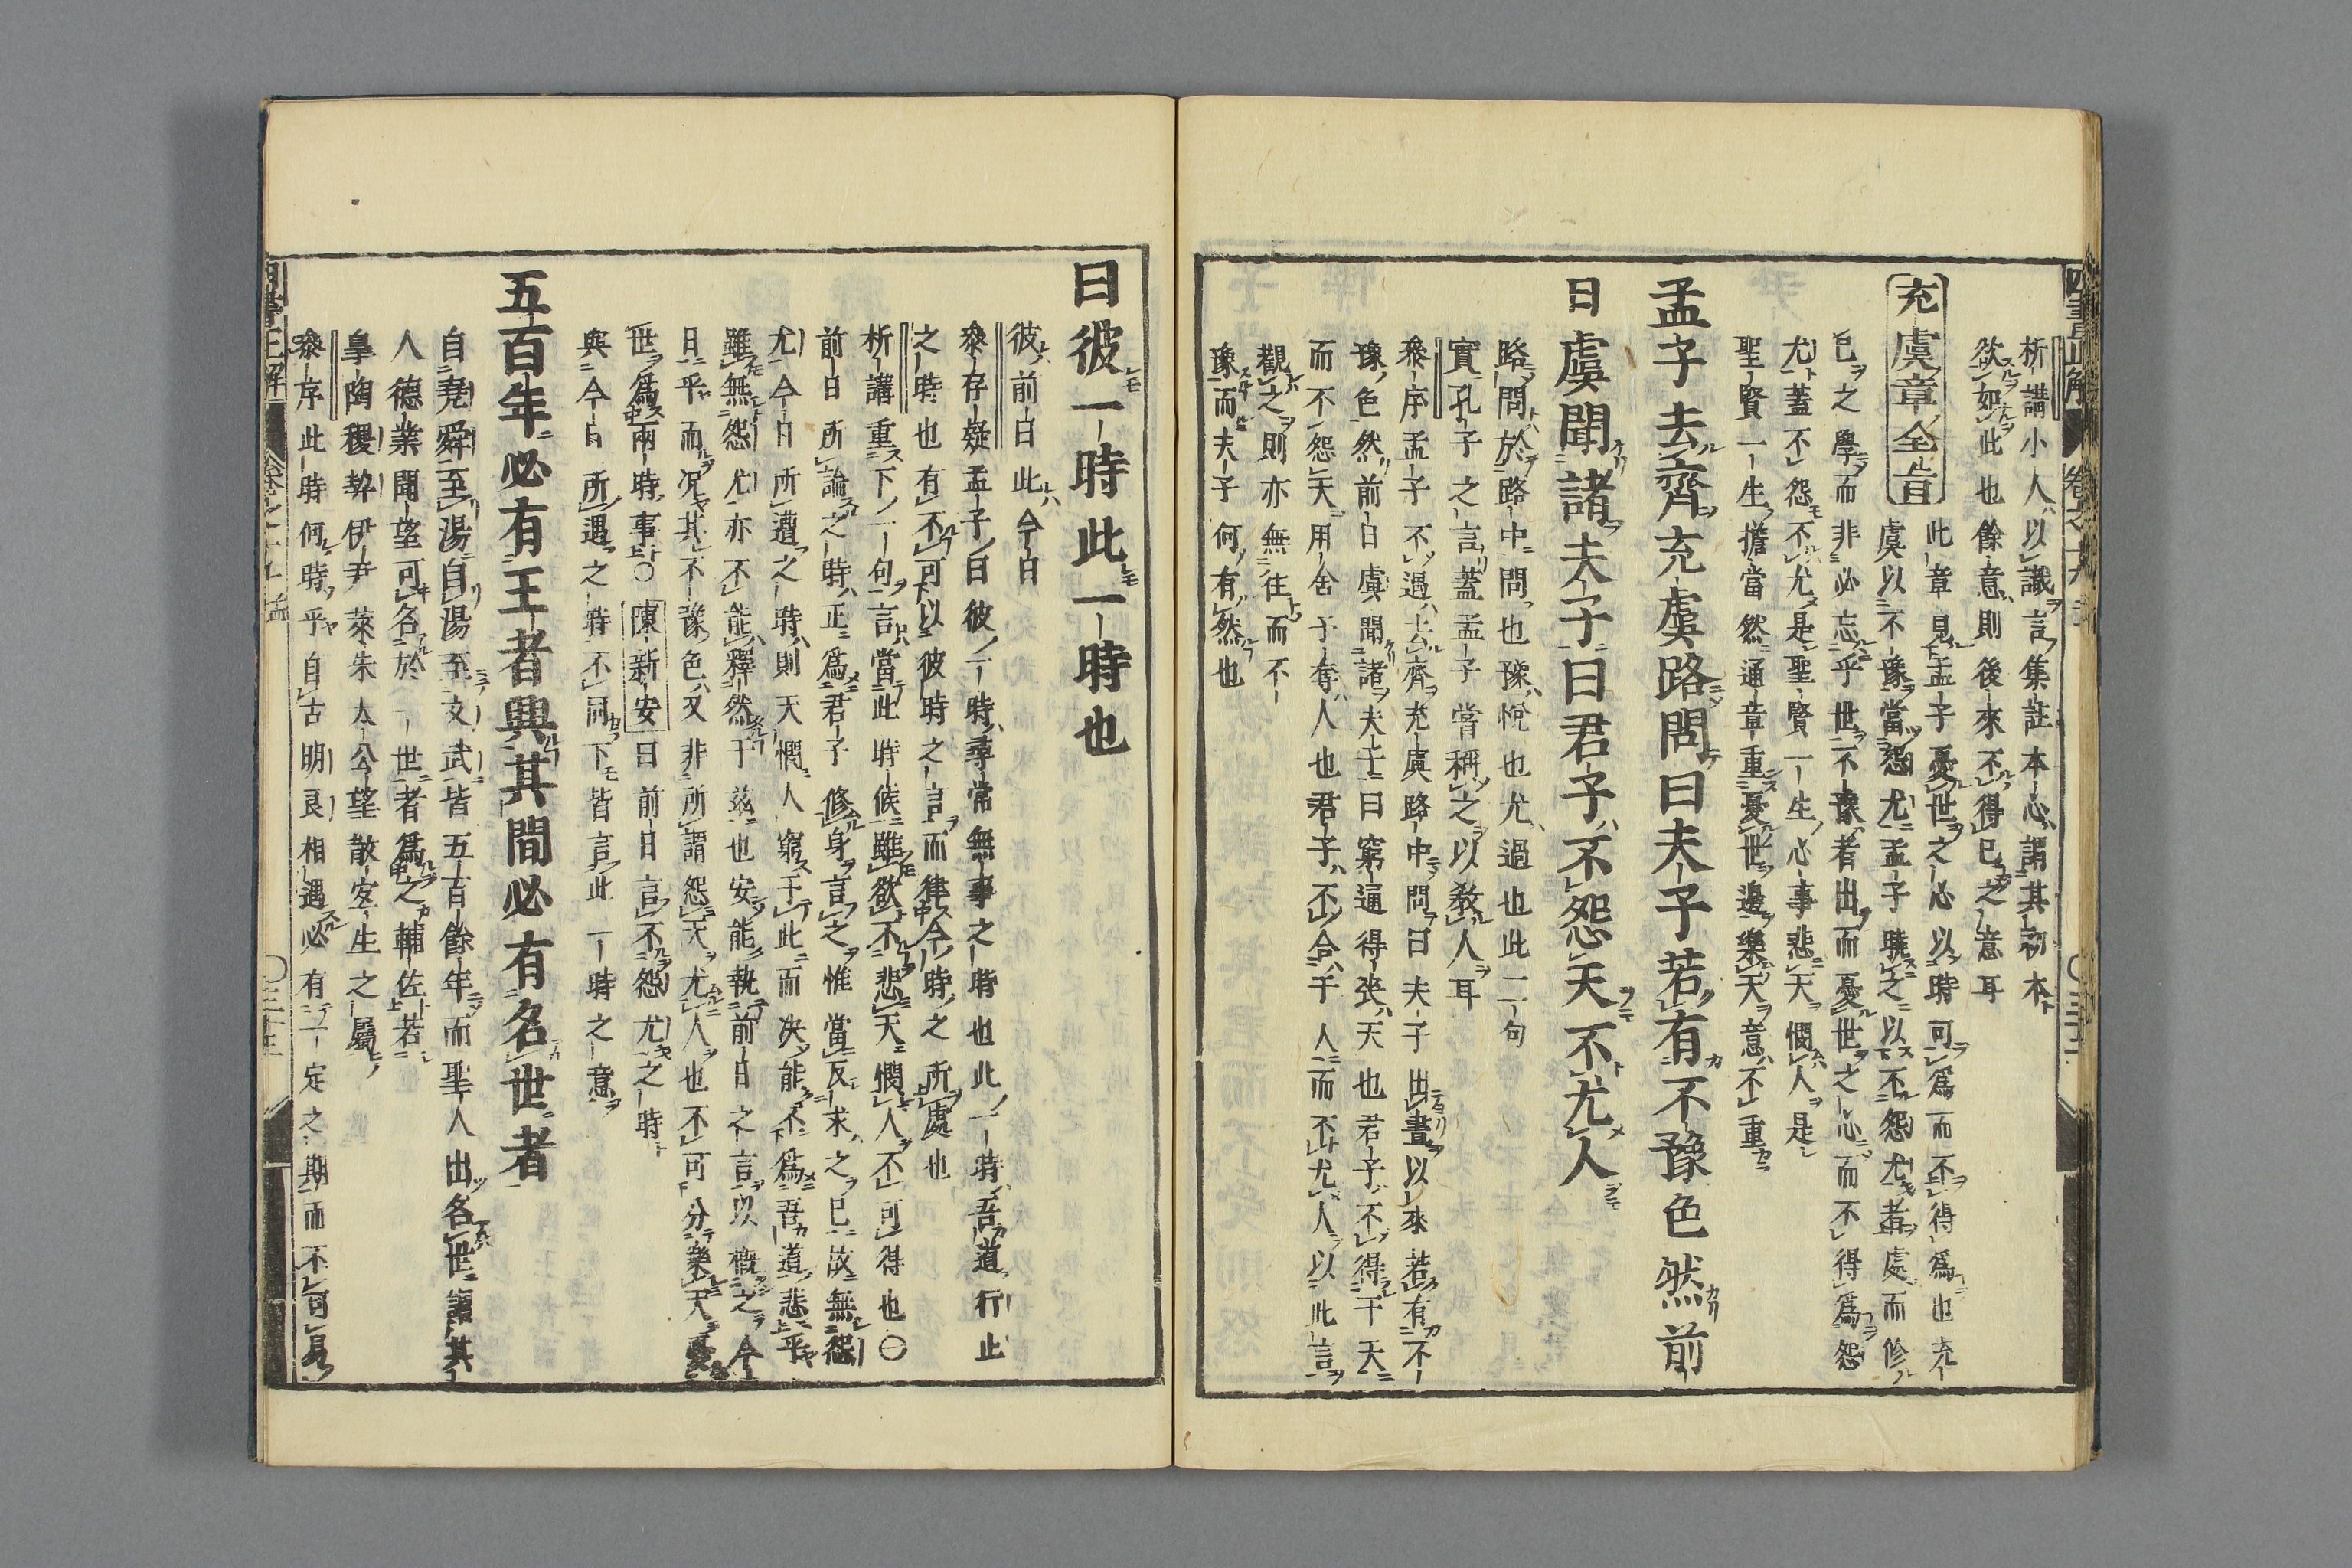 析講小人以識言集註本心謂其初本
欲如此也餘意則後來不得已之意耳
充虞章全旨 此章見孟子憂世之心以時可爲而不得爲也充
虞以不豫當怨尤孟子曉之以不怨尤者處而修
己之學而非必忘乎世不豫者出而憂世之心而不得爲怨
尤蓋不怨不尤是聖賢一生心事悲天憫人是
聖賢一生擔當然通章重憂世邊樂天意不重
孟子去齊充虞路問曰夫子若有不豫色然前
日虞聞諸夫子曰君子不怨天不尤人
路問於路中問也豫悅也尤過也此二句
實孔子之言蓋孟子嘗稱之以敎人耳
叅序孟子不遇去齊充虞路中問曰夫子出晝以來若有不
豫色然前日虞聞諸夫子曰窮通得喪天也君子不得于天
而不怨天用舍予奪人也君子不合于人而不尤人以此言
觀之則亦無往而不
豫而夫子何有然也
曰彼一時此一時也
彼前日此今日
叅存疑孟子曰彼一時尋常無事之時也此一時吾道行止
之時也有不可以彼時之言而律今時之所處也
析講重下一句言當此時候雖欲不悲天憫人不可得也〇
前日所論之時正爲君子修身言之惟當反求之己故無怨
尤今日所遭之時則天憫人窮于此而决能不爲吾道悲乎
雖無怨尤亦不能釋然于茲也安能執前日之言以槪之今
日乎而况其不豫色又非所謂怨天尤人也不可分樂天憂
世爲兩時事〇陳新安曰前日言不怨尤之時
與今日所遇之時不同下皆言此一時之意
五百年必有王者興其間必有名世者
自堯舜至湯自湯至文武皆五百餘年而聖人出名世謂其
人德業聞望可名於一世者爲之輔佐若
皐陶稷契伊尹萊朱太公望散宜生之屬
叅序此時何時乎自古明良相遇必有一定之期而不可易